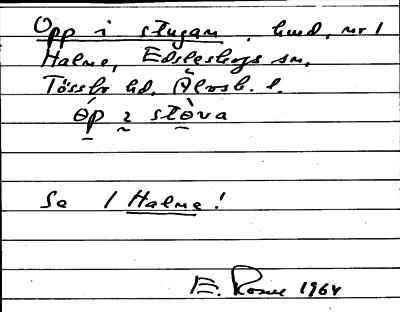 Opp i stugan, hmd. nr 1
Halme, Edsleskogs sn,
Tössbo hd, Älvsb. l.
öp ɩ støva
Se / Halme!
E. Rosne 1964